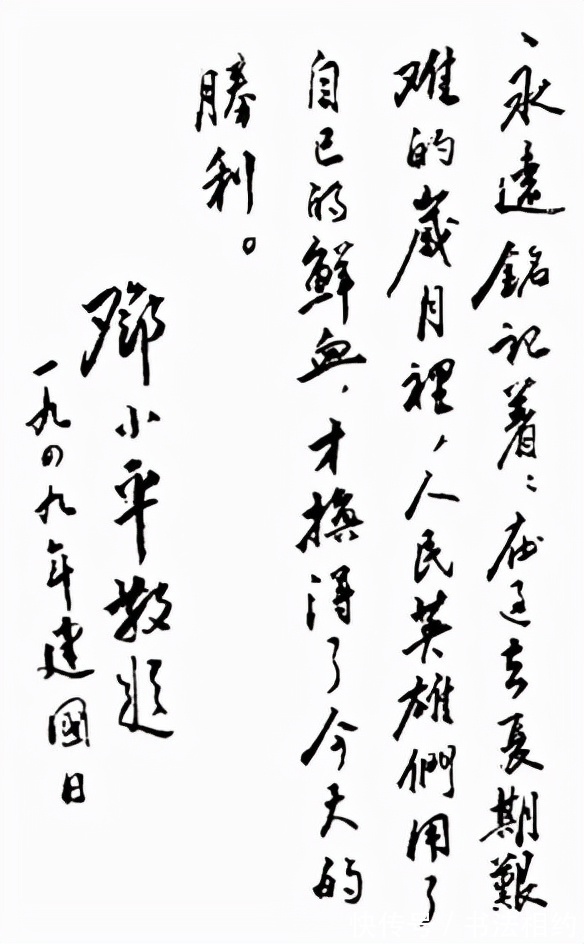 永遠銘記着：在过去長期艱
难的歲月裡，人民英雄們用了
自己的鮮血，才換得了今天的
勝利。
邓小平敬题
一九四九年建國日
快传号 /